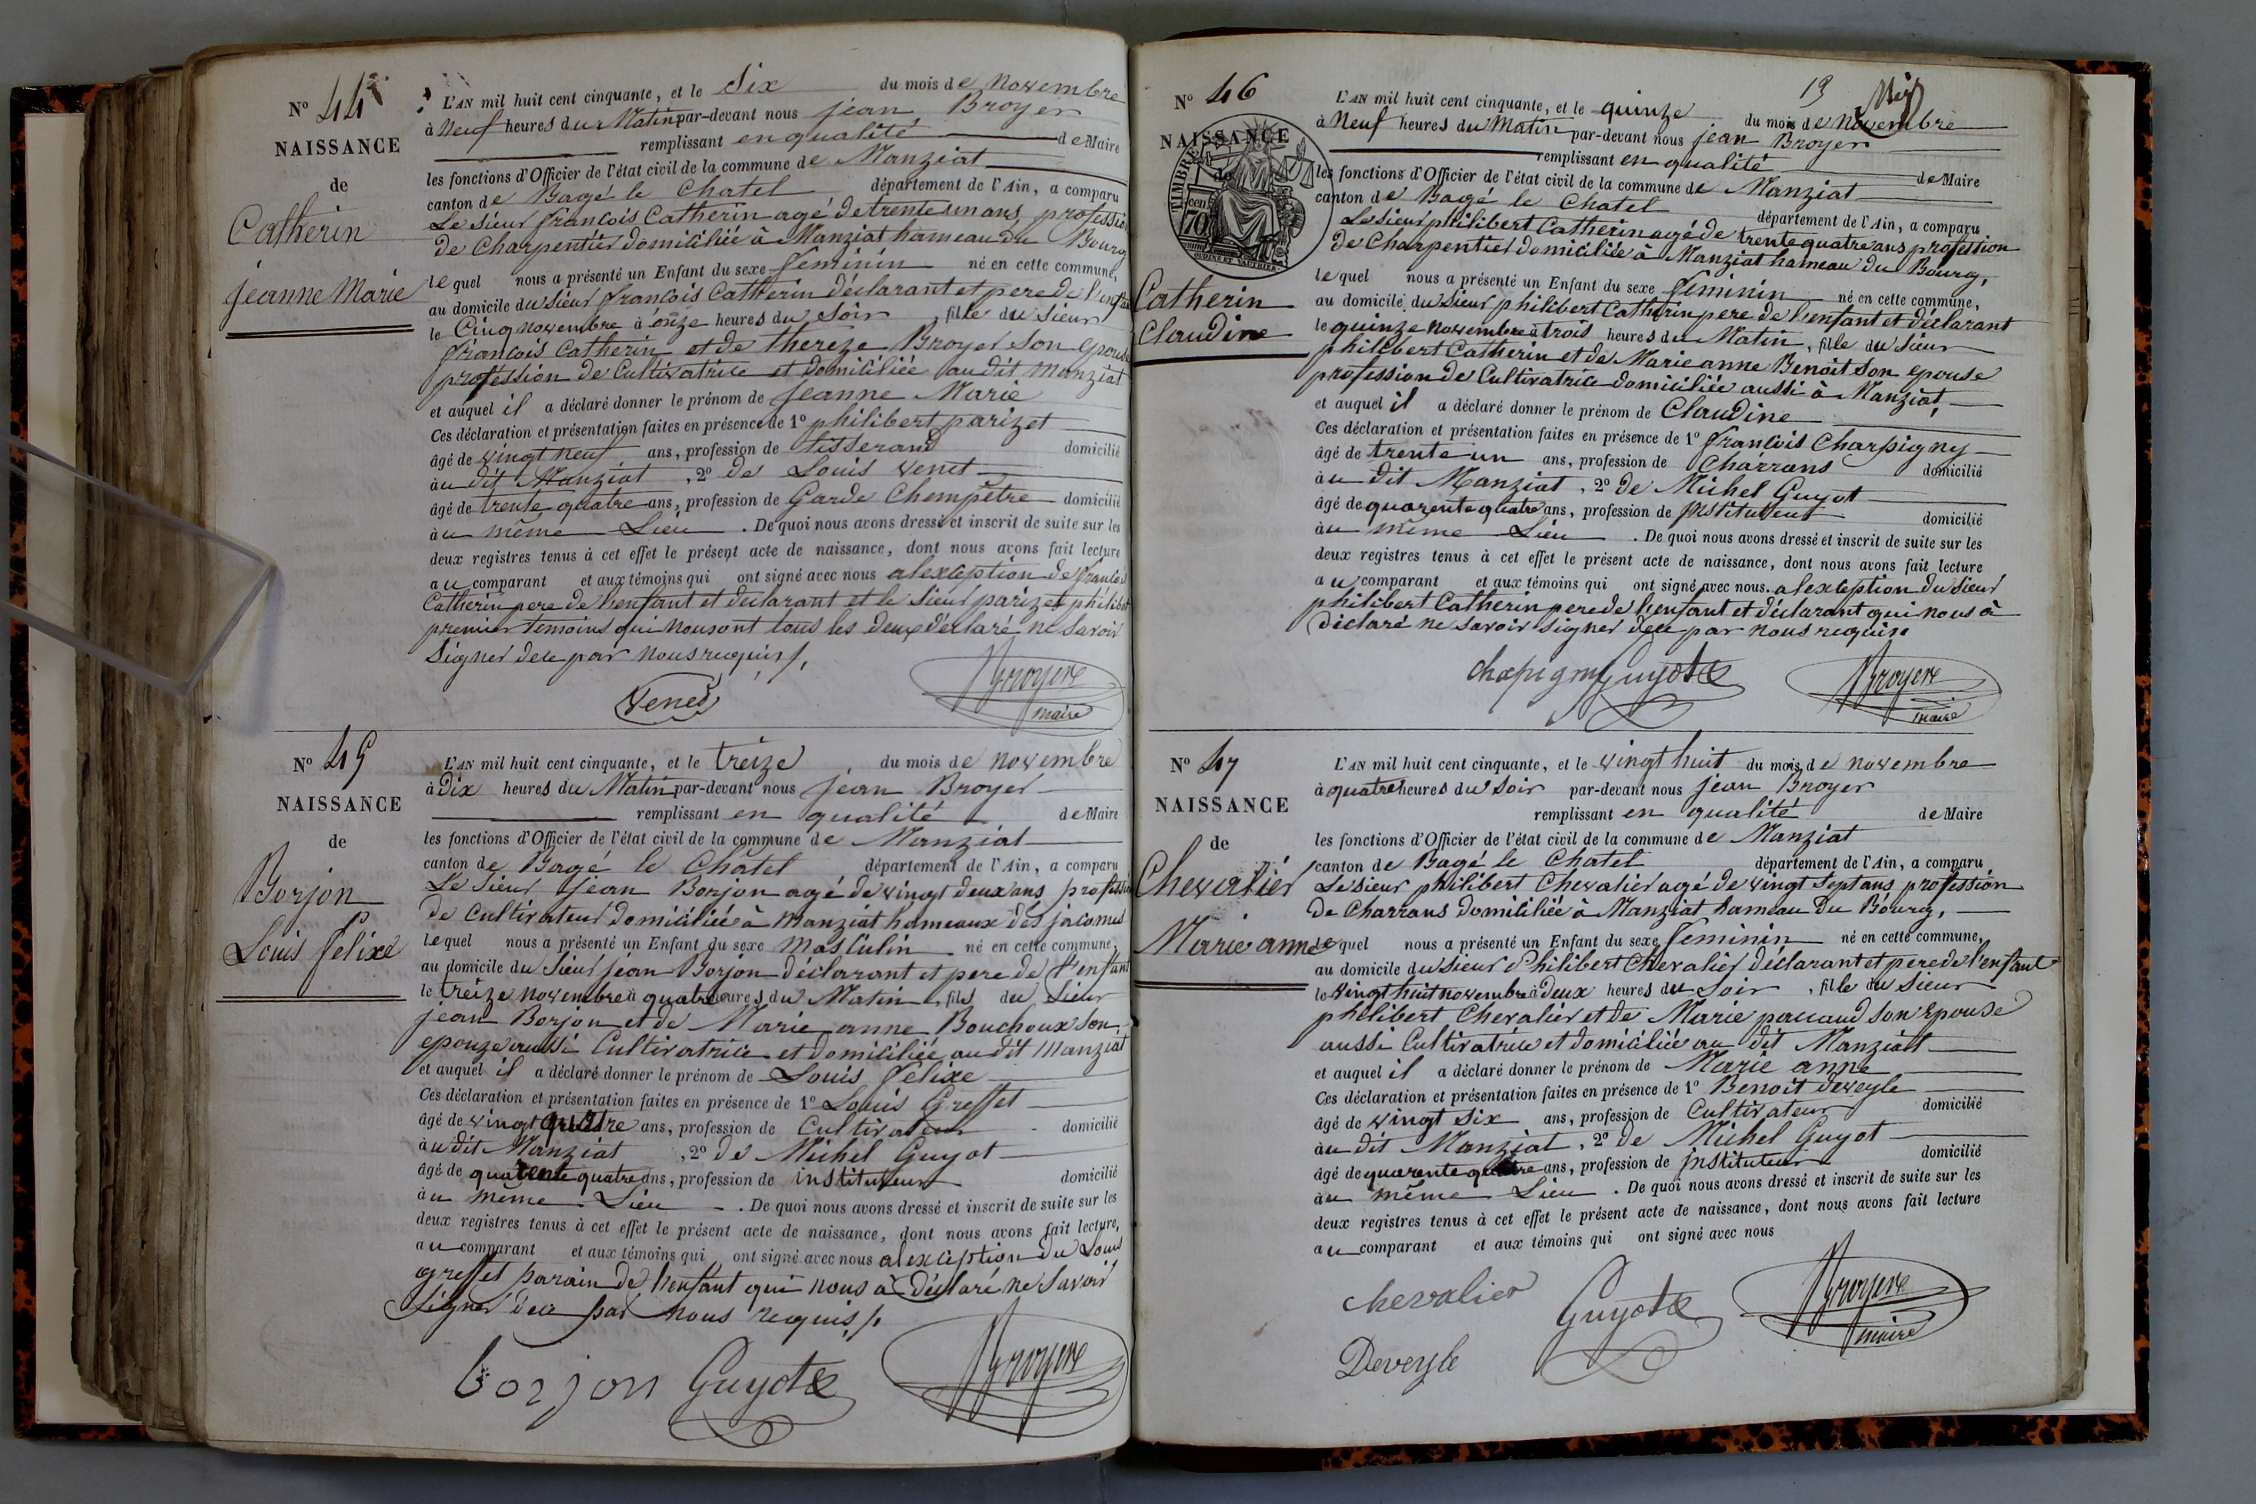 N° 44
NAISSANCE
de
Catherin
jeanne Marie
L'AN mil huit cent cinquante, et le Six du mois de Novembre
à Neuf heures du Matin par-devant nous jean Broyer
remplissant en qualité de Maire
les fonctions d'Officier de l'état civil de la commune de Manziat
canton de Bagé le Chatel département de l'Ain, a comparu
Le Sieur françois Catherin agé de trente un ans, profession
de Charpentier domiciliée à Manziat hameau du Bourg
lequel nous a présenté un Enfant du sexe feminin né en cette commune,
au domicile du sieur françois Catherin déclarant et pere de l'enfant
le Cinq novembre à onze heures du Soir, fille du Sieur
françois Catherin et de thereze Broyer son epouse
profession de Cultivatrice et domiciliée au dit Manziat
et auquel il a déclaré donner le prénom de Jeanne Marie
Ces déclaration et présentation faites en présence de 1° philibert parizet
âgé de vingt neuf ans, profession de tisserand domicilié
au dit Manziat, 2° de Louis Venet
âgé de trente quatre ans, profession de Garde Chempêtre domicilié
au même Lieu. De quoi nous avons dressé et inscrit de suite sur les
deux registres tenus à cet effet le présent acte de naissance, dont nous avons fait lecture
au comparant et aux témoins qui ont signé avec nous alexception de françois
Catherin pere de l'enfant et déclarant et le Sieur parizet philibert
premier temoins qui nous ont tous les deux déclaré ne Savoir
Signer dece par nous requis /.
Venet
Broyer
maire
N° 45
NAISSANCE
de
Borjon
Louis felixe
L'AN mil huit cent cinquante, et le treize du mois de novembre
à Dix heures du Matin par-devant nous jean Broyer
remplissant en qualité de Maire
les fonctions d'Officier de l'état civil de la commune de Manziat
canton de Bagé le Chatel département de l'Ain, a comparu
Le Sieur jean Borjon agé de vingt deux ans profession
de Cultivateur domiciliée à Manziat hameaux des jacomus
lequel nous a présenté un Enfant du sexe Masculin né en cette commune,
au domicile du Sieur jean Borjon déclarant et pere de l'enfant
le treize novembre à quatre heures du Matin, fils du Sieur
jean Borjon et de Marie anne Bouchoux son
epouze aussi Cultivatrice et domiciliée au dit Manziat
et auquel il a déclaré donner le prénom de Louis felixe
Ces déclaration et présentation faites en présence de 1° Louis Greffet
âgé de vingt quatre ans, profession de Cultivateur domicilié
au dit Manziat, 2° de Michel Guyot
âgé de quarente quatre ans, profession de instituteur domicilié
au même Lieu. De quoi nous avons dressé et inscrit de suite sur les
deux registres tenus à cet effet le présent acte de naissance, dont nous avons fait lecture,
au comparant et aux témoins qui ont signé avec nous alexception du Louis
greffet parain de l'enfant qui nous à déclaré ne Savoir
Signer dece par nous requis /.
borjon
Guyot
Broyer
N° 46
NAISSANCE
de
TIMBRE
70
Catherin
Claudine
13
L'AN mil huit cent cinquante, et le quinze du mois de Novembre
à Neuf heures du Matin par-devant nous jean Broyer
remplissant en qualité de Maire
les fonctions d'Officier de l'état civil de la commune de Manziat
canton de Bagé le Chatel département de l'Ain, a comparu
Le sieur philibert Catherin agé de trente quatre ans profession
de Charpentier domiciliée à Manziat hameau du Bourg,
lequel nous a présenté un Enfant du sexe feminin né en cette commune,
au domicile du sieur philibert Catherin pere de l'enfant et déclarant
le quinze novembre à trois heures du Matin, fille du sieur
philibert Catherin et de Marie anne Benoit son epouse
profession de Cultivatrice domiciliée aussi à Manziat,
et auquel il a déclaré donner le prénom de Claudine
Ces déclaration et présentation faites en présence de 1° françois Charpigny
âgé de trente un ans, profession de Charrons domicilié
au dit Manziat, 2° de Michel Guyot
âgé de quarente quatre ans, profession de instituteur domicilié
au même Lieu. De quoi nous avons dressé et inscrit de suite sur les
deux registres tenus à cet effet le présent acte de naissance, dont nous avons fait lecture
au comparant et aux témoins qui ont signé avec nous alexception du Sieur
philibert Catherin pere de l'enfant et déclarant qui nous à
déclaré ne savoir signer dece par nous requis
Guyot
Broyer
maire
N° 47
NAISSANCE
de
Chevalier
Marie anne
L'AN mil huit cent cinquante, et le vingt huit du mois de novembre
à quatre heures du Soir par-devant nous jean Broyer
remplissant en qualité de Maire
les fonctions d'Officier de l'état civil de la commune de Manziat
canton de Bagé le Chatel département de l'Ain, a comparu
Le sieur philibert Chevalier agé de vingt Sept ans profession
de Charrons domiciliée à Manziat hameau du Bourg,
lequel nous a présenté un Enfant du sexe feminin né en cette commune,
au domicile du sieur Philibert Chevalier déclarant et pere de l'enfant
le vingt huit novembre à deux heures du Soir, fille du sieur
philibert Chevalier et de Marie paccaud son Epouse
aussi Cultivatrice et domiciliée au dit Manziat
et auquel il a déclaré donner le prénom de Marie anne
Ces déclaration et présentation faites en présence de 1° Benoit deveyle
âgé de vingt Six ans, profession de Cultivateur domicilié
au dit Manziat, 2° de Michel Guyot
âgé de quarente quatre ans, profession de instituteur domicilié
au même Lieu. De quoi nous avons dressé et inscrit de suite sur les
deux registres tenus à cet effet le présent acte de naissance, dont nous avons fait lecture
au comparant et aux témoins qui ont signé avec nous
chevalier
Guyot
Broyer
maire
Deveyle